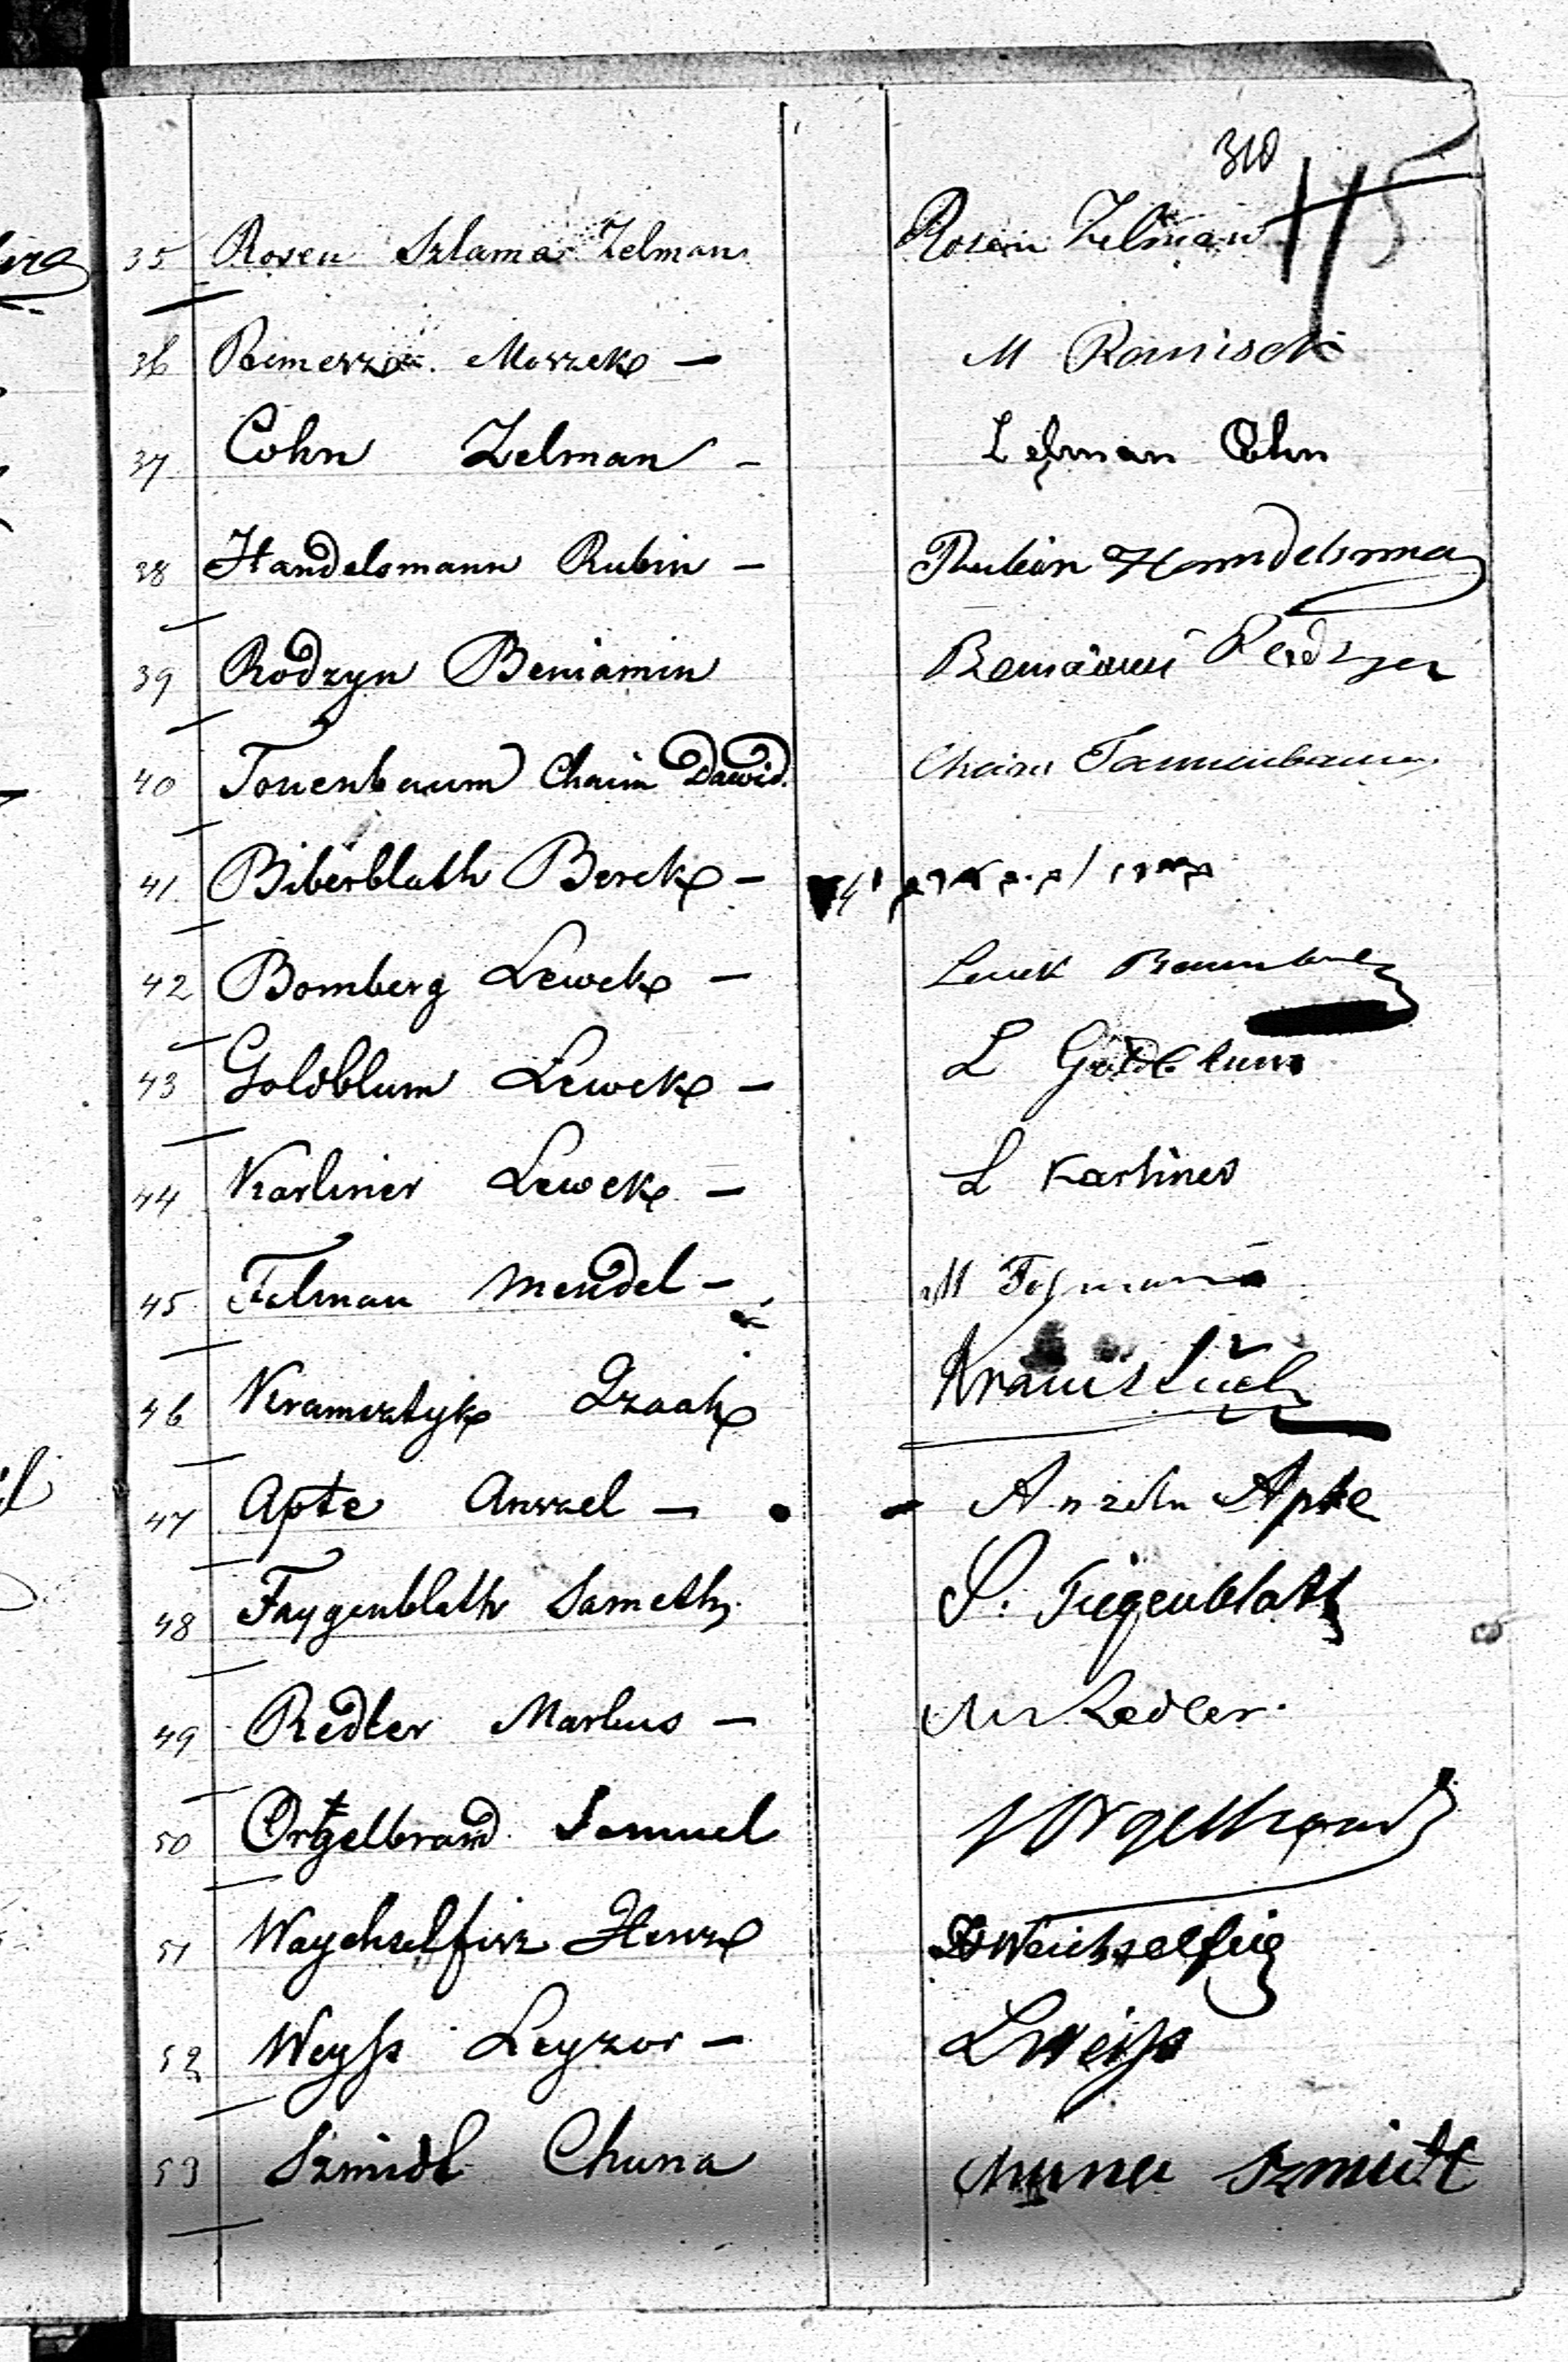 310
115
35 Rosen Szlama Zelman Rosen Zelman
36 Moszek — M
37 Cohn Zelman — Zelman Cohn
38 Handelsmann Rubin — Rubin Handelsman
39 Rodzyn Beniamin
40 Tonenbaum Chaim Dawid. Chaim Tannenbaum
41 Biberblath Berek —
42 Bomberg Lewek — Lewek
43 Goldblum Lewek — L Goldblum
44 Karliner Lewek — L Karliner
45 Felman Mendel — M
46 Kramsztyk Izaak Kramsztück
47 Apte Anszel — Apte
48 Faygenblath S. Fiegenblatt
49 Redler Markus — M Redler
50 Orgelbrand Samuel SOrgelbrand
51 Waychselfisz Henzel HWeichselfisz
52 Weyss Leyzor — LWeiss
53 Szmidt Chuna Chuna Szmidt